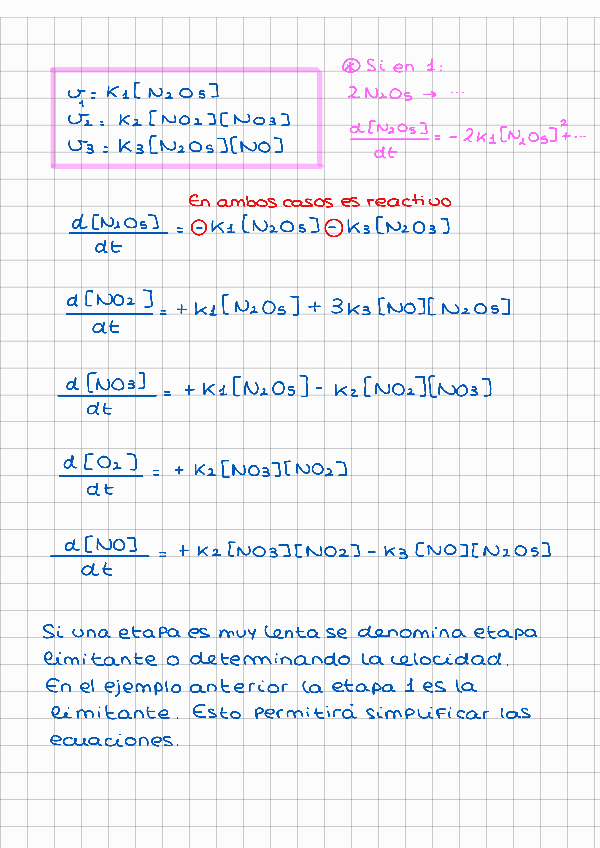 v1 = K1[N2O5]
v2 = K2[NO2][NO3]
v3 = K3[N2O5][NO]
⊛ Si en 1:
2N2O5 → ...
d[N2O5]/dt = -2K1[N2O5]^2 + ...
En ambos casos es reactivo
d[N2O5]/dt = -K1[N2O5] - K3[N2O3]
d[NO2]/dt = +K1[N2O5] + 3K3[NO][N2O5]
d[NO3]/dt = +K1[N2O5] - K2[NO2][NO3]
d[O2]/dt = +K2[NO3][NO2]
d[NO]/dt = +K2[NO3][NO2] - K3[NO][N2O5]
Si una etapa es muy lenta se denomina etapa
limitante o determinando la velocidad.
En el ejemplo anterior la etapa 1 es la
limitante. Esto permitirá simplificar las
ecuaciones.